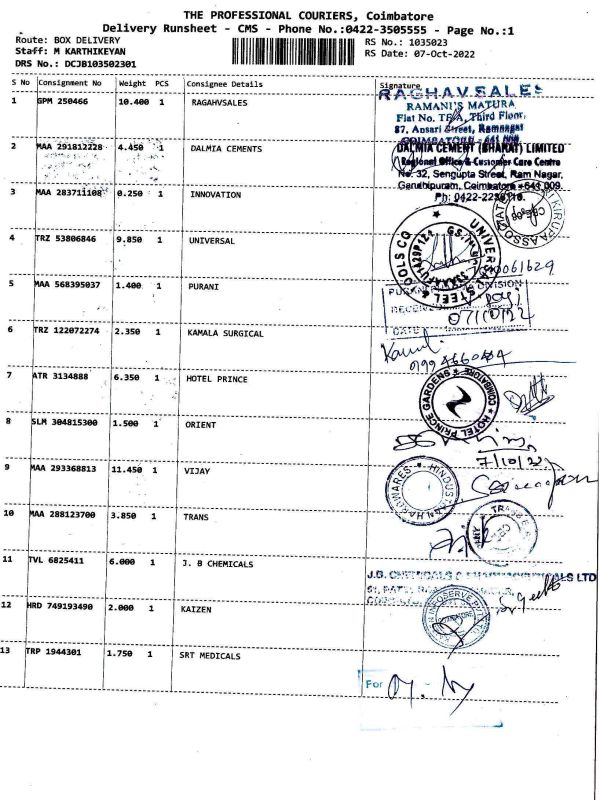 THE PROFESSIONAL COURIERS, Coimbatore
Delivery Runsheet - CMS - Phone No.:0422-3505555 - Page No.:1
Route: BOX DELIVERY
RS No.: 1035023
Staff: M KARTHIKEYAN
RS Date: 07-Oct-2022
DRS No.: DCJB103502301
S No Consignment No Weight PCS Consignee Details Signature
1 GPM 250466 10.400 1 RAGAHVSALES
RAGHAVSALES
RAMANI'S MATURA
Flat No. Third Floor,
87, Ansari Street, Ramnagar
COIMBATORE
2 MAA 291812228 4.450 1 DALMIA CEMENTS
DALMIA CEMENT (BHARAT) LIMITED
Regional Office & Customer Care Centre
No. 32, Sengupta Street, Ram Nagar,
Gandhipuram, Coimbatore - 641 009.
3 MAA 283711108 0.250 1 INNOVATION
Ph: 0422-
KIRUPA ASSOCIAT
4 TRZ 53806846 9.850 1 UNIVERSAL
UNIVERSAL STEEL & TOOLS CO
5 MAA 568395037 1.400 1 PURANI
DIVISION
07/10/22
DATE
6 TRZ 122072274 2.350 1 KAMALA SURGICAL
7 ATR 3134888 6.350 1 HOTEL PRINCE
HOTEL PRINCE GARDENS
COIMBATORE
8 SLM 304815300 1.500 1 ORIENT
7/10/22
9 MAA 293368813 11.450 1 VIJAY
10 MAA 288123700 3.850 1 TRANS
11 TVL 6825411 6.000 1 J. B CHEMICALS
J.B. CHEMICALS & PHARMACEUTICALS LTD
12 HRD 749193490 2.000 1 KAIZEN
13 TRP 1944301 1.750 1 SRT MEDICALS
For